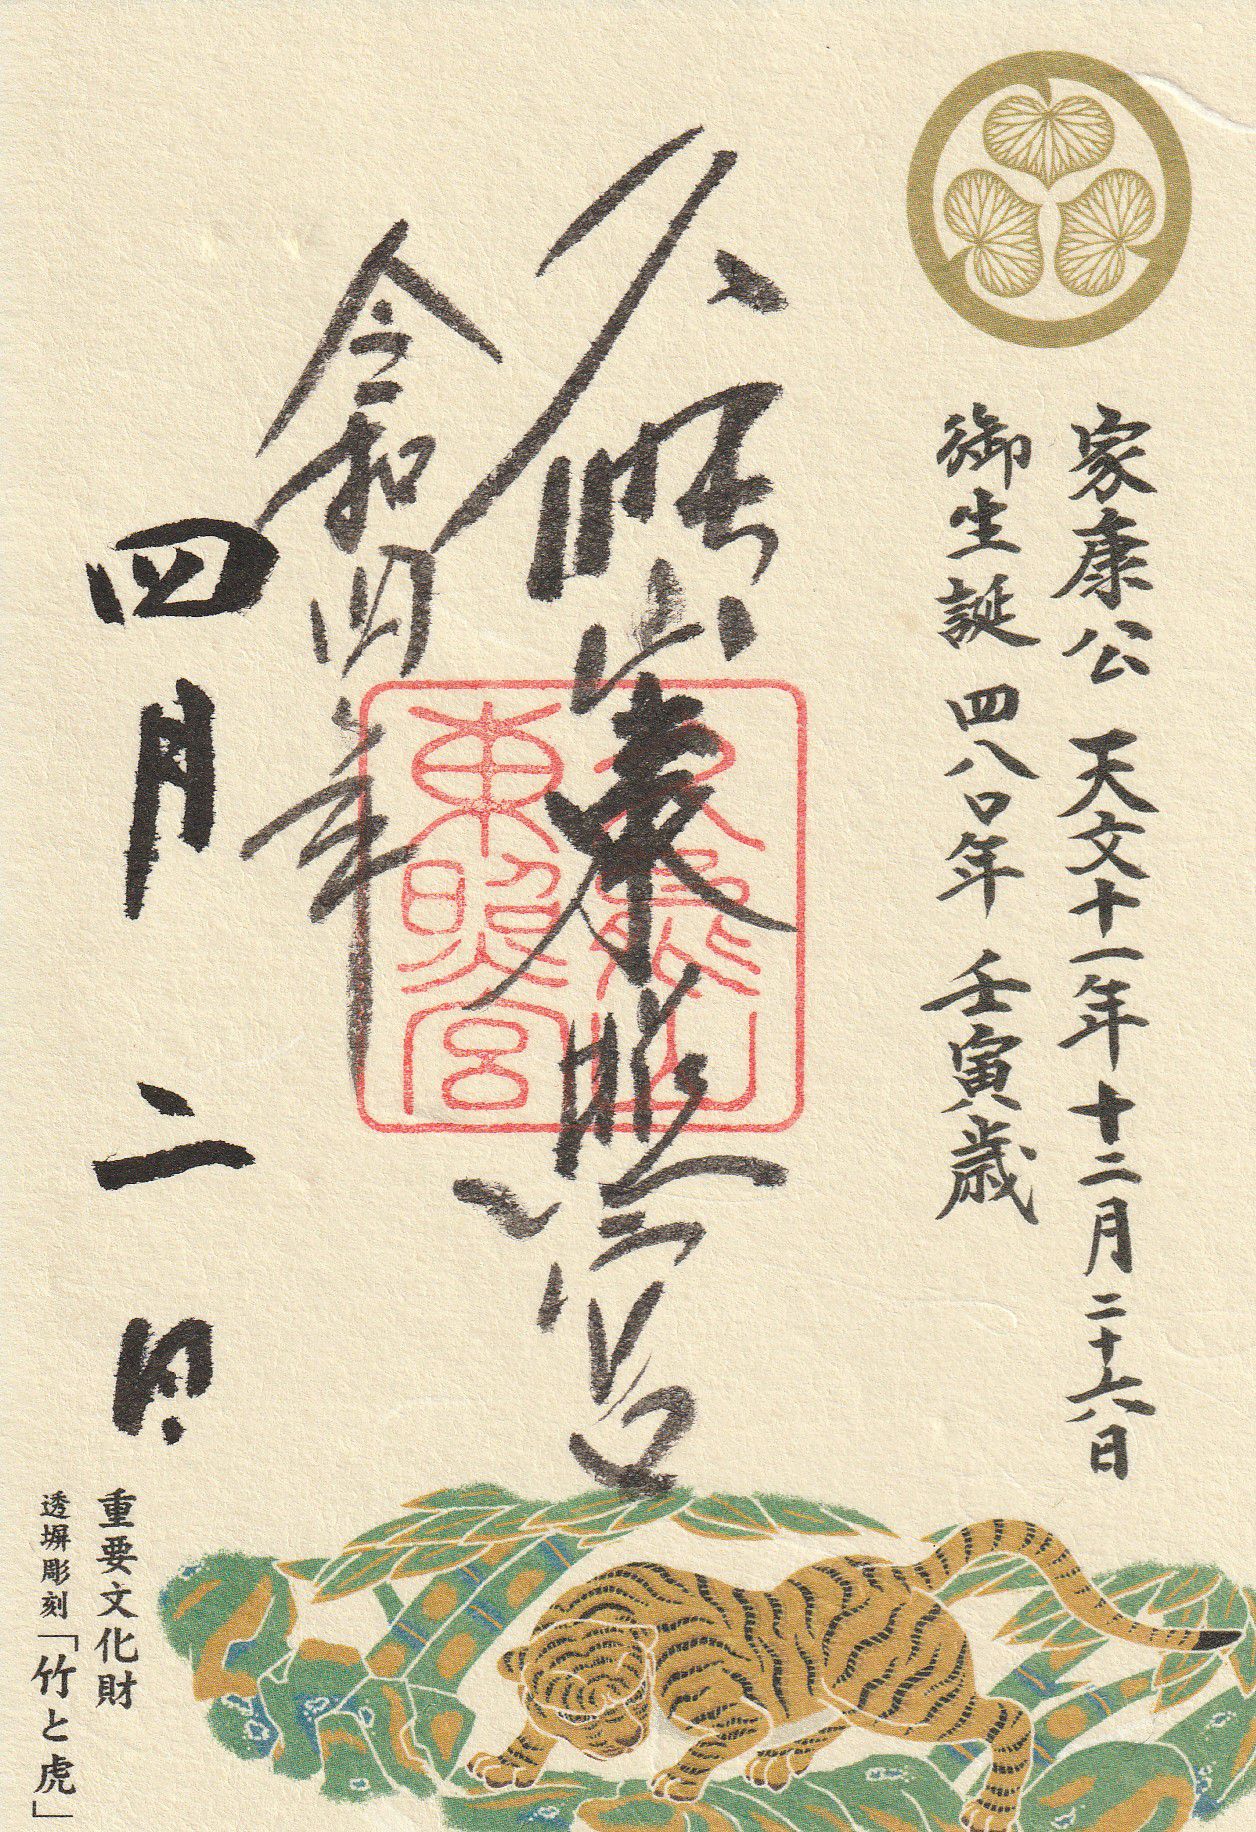 家康公 天文十一年 十二月二十六日
御生誕 四八〇年 壬寅歳
久能山東照宮
久能山
東照宮
令和四年
四月二日
重要文化財
透塀彫刻「竹と虎」